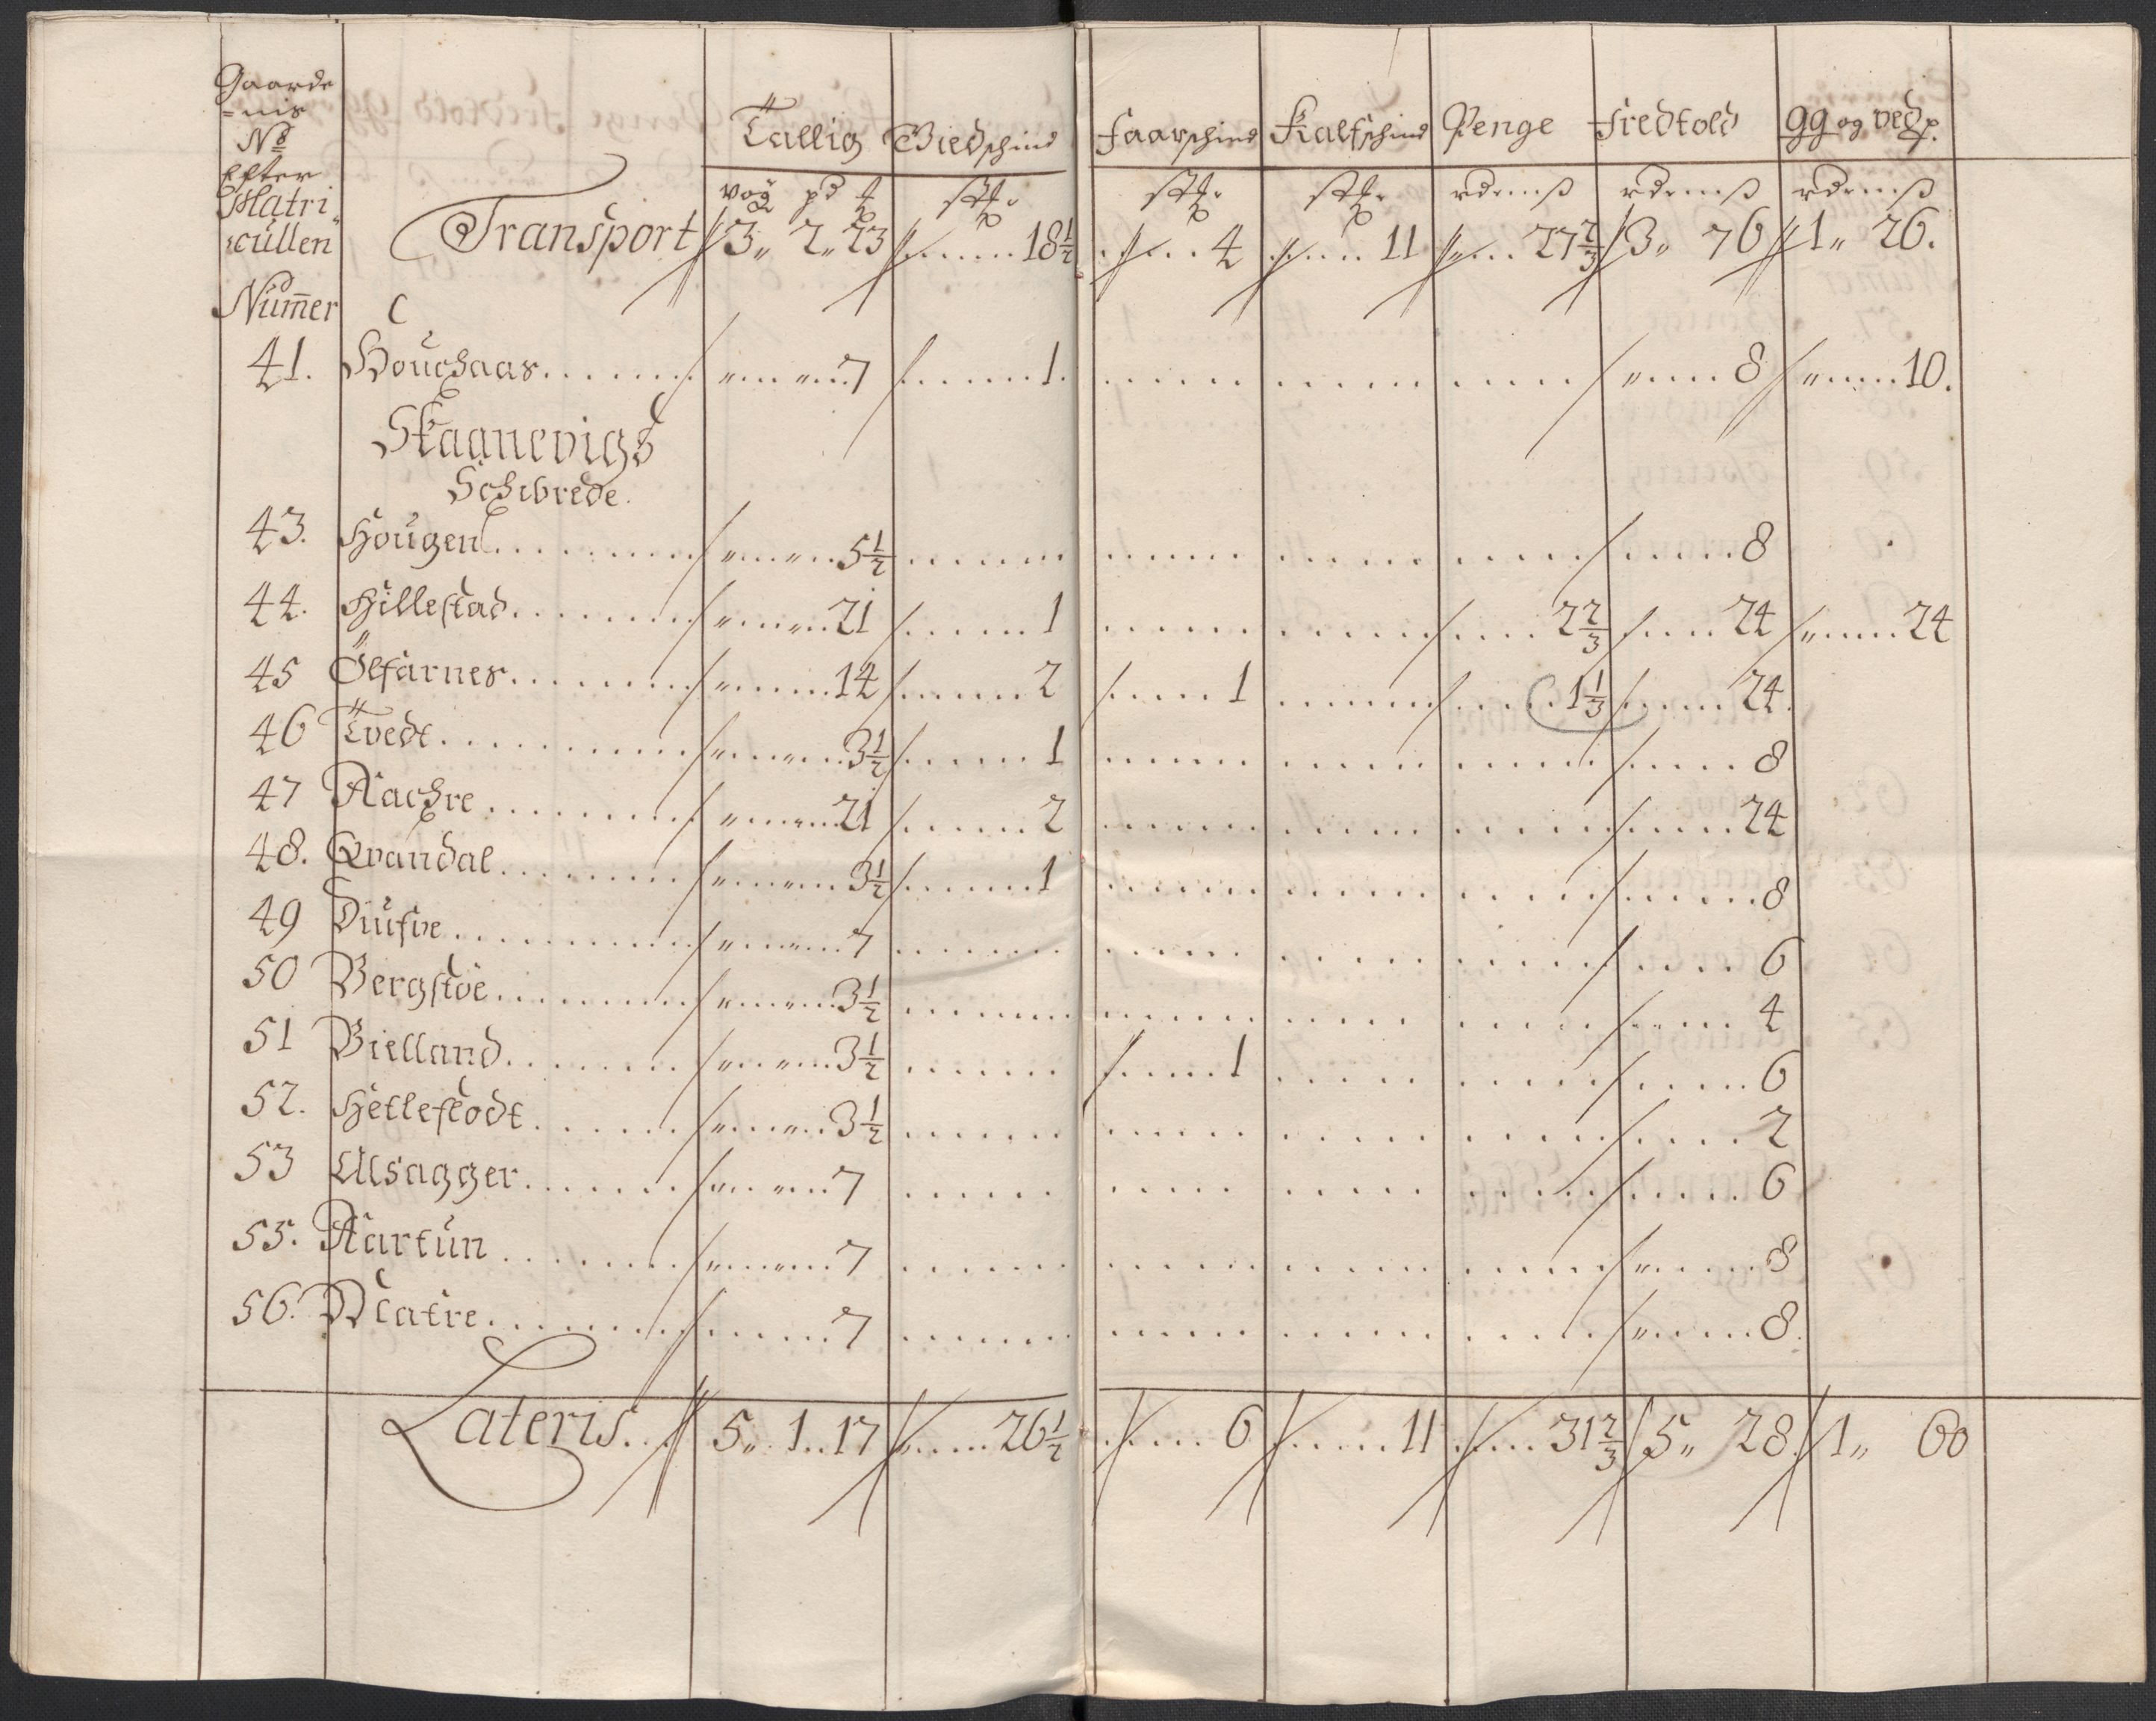 Gaarde
=nis
No
Efter
Matri
cullen
Num̄er
Tallig Giedschind Faarschind Kalfschind Penge Fredtold gg og ved p.
vog pd ℔ stk. stk. stk. rdr mß rdr mß rdr mß
Transport 3„ 2„ 23 18½ 4 11 27⅔ 3„ 76 1„ 26.
41. Houchaas 7 1. 8 10.
Skaanevigs
Schibrede.
43. Hougen 5½ 8
44. Hillestad 21 1 2⅔ 24 24
45 Ölfarnes 14 2 1 1⅓ 24.
46 Tvedt 3½ 1 8
47 Aachre 21 2 24
48. Qvandal 3½ 1 8
49 Diufve 7 6
50 Bergstöe 3½ 4
51 Bielland 3½ 1 6
52. Hetleflodt 3½ 2
53 Alsagger 7 6
55. Aartun 7 8
56. Matre 7 8.
Lateris 5„ 1„ 17 26½ 6 11 31⅔ 5„ 28. 1„ 60